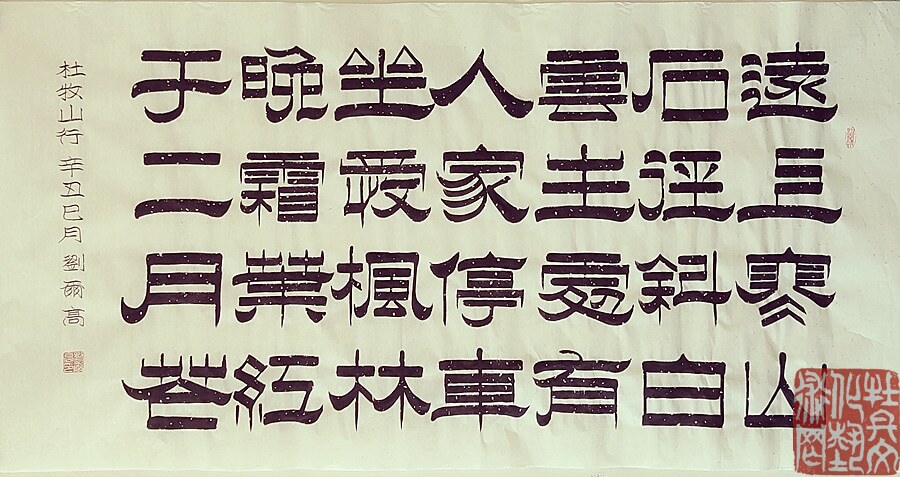 遠上寒山
石徑斜白
雲生處有
人家停車
坐愛楓林
晚霜葉紅
于二月花
杜牧山行 辛丑巳月 劉爾高